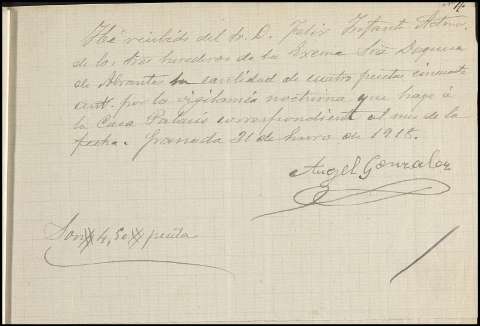 He recibido del Sr. D. Felix Infante Admor.
de los tres herederos de la Excma Sra Duquesa
de Abrantes la cantidad de cuatro pesetas cincuenta
cent. por la vigilancia nocturna que hago á
la Casa Palacio correspondiente al mes de la
fecha. Granada 31 de Enero de 1918.
Angel Gonzalez
Son 4,50 pesetas